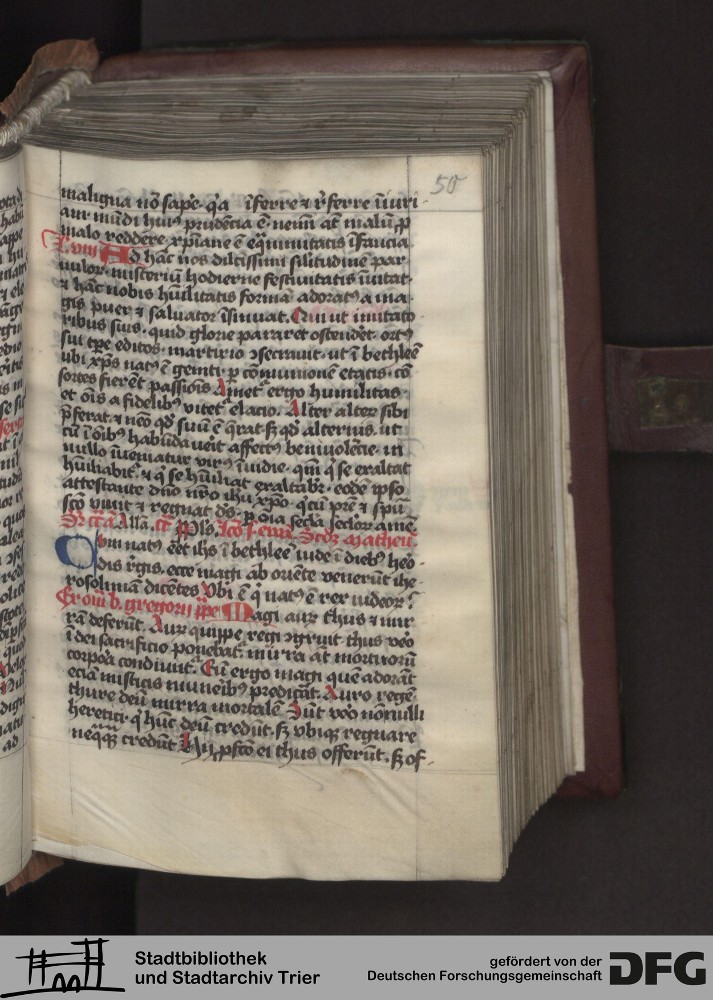 50
maligna nō sape· q̄a īferre ⁊ r̄ferre iīuri
am mūdi huiꝰ prudēcia ē· nemī at̄ malū ꝓ
malo reddere xp̄iane ē eq̄nimitatis īfancia
Ad hāc nos dilc̄issimi silitudinē par
uulor· misteriū hodierne festiuitatis īuitat·
⁊ hāc nobis hūilitatis formā adoratꝰ a ma
gis puer ⁊ saluator īsinuat. Qui ut imitato
ribus suis· quid glorie pararet ostendet· ortꝰ
sui tp̄e editos martirio ↄsecrauit· ut ī bethleē
ubi xp̄s natꝰ ē geniti· p cōmunionē etatis· cō
sortes fierēt passiōis Amet̄ ergo humilitas·
et ōis a fidelibꝰ vitet̄ elacio. Alter alterū sibi
p̄ferat· ⁊ nēo qd̄ suū ē q̄rat sꝫ qd̄ alterius· ut
cū ī ōibꝰ habūdauerit affectꝰ beniuolēcie· in
nullo īueniatur virꝰ īuidie· qm̄ q̄ se exaltat
hūiliabit᷑· ⁊ q̄ se hūiliat exaltabit᷑· eodē ipso
attestante dn̄o nr̄o ihū xp̄o· q̄ cū pr̄e ⁊ sp̄u
sc̄o viuit ⁊ regnat ds̄· p oīa secl̄a seclor̄ amē.
Scd̄m Matheū
Cum natꝰ eēt ihs̄ ī bethleē iude ī diebꝰ hero
dis r̄gis· ecce magi ab oriēte venerūt ihe
rosolimā dicētes Vbi ē q̄ natꝰ ē rex iudeor̄?
b. gregorii pp̄e Magi aur̄ thus ⁊ mir
rā deferūt. Aur̄ quippe regi ↄgruit thus vēo
ī dei sacrificio ponebat᷑· mirra at̄ mortuorū
corpōa condiunt᷑. Eū ergo magi quē adorāt
eciā misticis muneribꝰ predicāt. Auro regē
thure deū mirra mortalē Sūt vēo nōnulli
heretici· q̄ hūc deū credūt· sꝫ vbiqꝫ regnare
neq̄q̄ credūt Hij pfcō ei thus offerūt· sꝫ of·
Stadtbibliothek
und Stadtarchiv Trier
gefördert von der
Deutschen Forschungsgemeinschaft
DFG